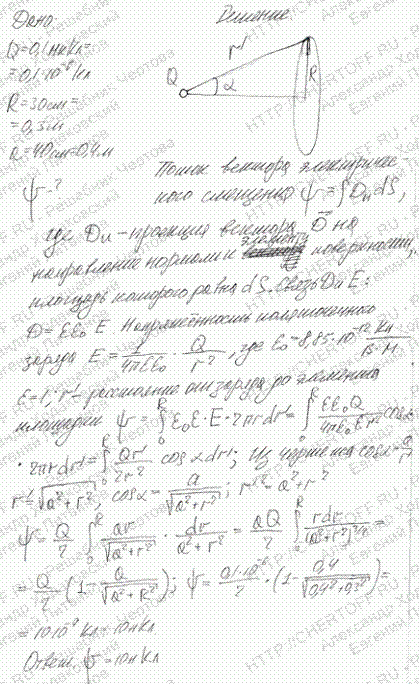 Дано:
Решение.
Q=0,1 мкКл=
=0,1·10⁻⁶ Кл
R=30см=
=0,3м
a=40см=0,4м
Ψ-?
Q
r'
α
R
Поток вектора электричес-
кого смещения Ψ=∫DₙdS,
где Dₙ-проекция вектора D на
направление нормали к элементу поверхности,
площадь которого равна dS. Связь D и E:
D=εε₀E. Напряжённость поля точечного
заряда E=1/(4πεε₀)·Q/r'², где ε₀=8,85·10⁻¹² Кл/(В·м)
ε=1, r'- расстояние от заряда до элемента
площадки Ψ=∫ε₀ε·E·2πrdr=∫(εε₀Q)/(4πε₀εr'²)cosα·
·2πrdr=∫Qr/(2r'²) cosα dr; Из чертежа cosα=a/r'
r'=√(a²+r²), cosα=a/√(a²+r²); r'²=a²+r²
Ψ=Q/2 ∫ar/√(a²+r²)·dr/(a²+r²)=aQ/2 ∫rdr/(a²+r²)^(3/2)=
=Q/2(1-a/√(a²+R²)); Ψ=0,1·10⁻⁶/2·(1-0,4/√(0,4²+0,3²))=
=10·10⁻⁹ Кл=10нКл.
Ответ: Ψ=10нКл
HTTP://CHERTOFF.RU - Решебник Чертова
Александр Хор
Евгений П